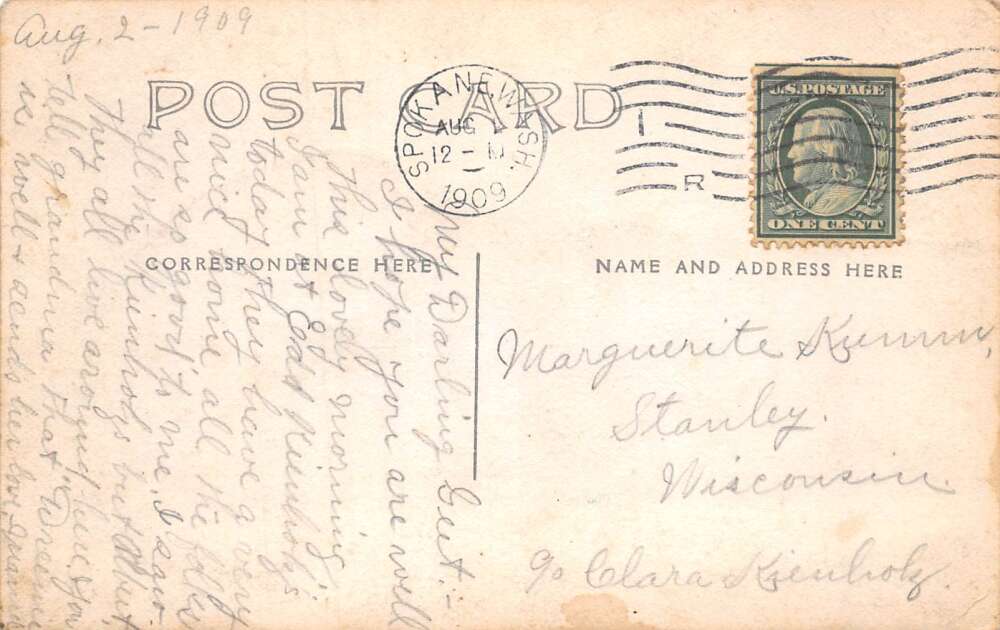 Aug. 2-1909
POST CARD
SPOKANE, WASH.
AUG
12 - M
1909
R
U.S. POSTAGE
ONE CENT
CORRESPONDENCE HERE
NAME AND ADDRESS HERE
My Darling
I hope you are well
this lovely morning.
I am at Edd Kienholz's
today they have a very
nice home all the folks
are so good to me. I
all the Kienholz but
They all live around here. You
Tell grandma that
is well & sends her love
Marguerite Kumm,
Stanley.
Wisconsin.
c/o Clara Kienholz.